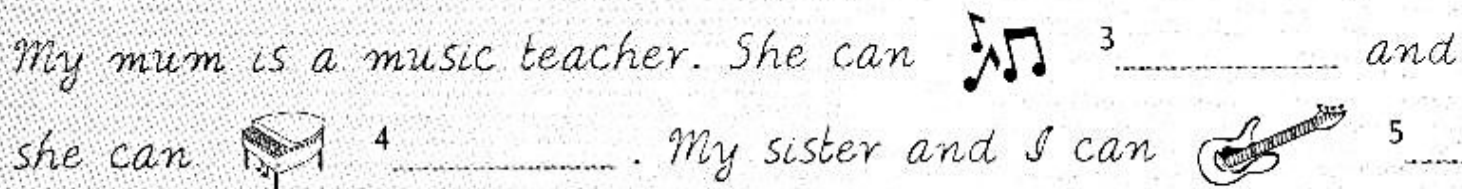 My mum is a music teacher. She can 3 ............... and
she can 4 ............... . My sister and I can 5 ....